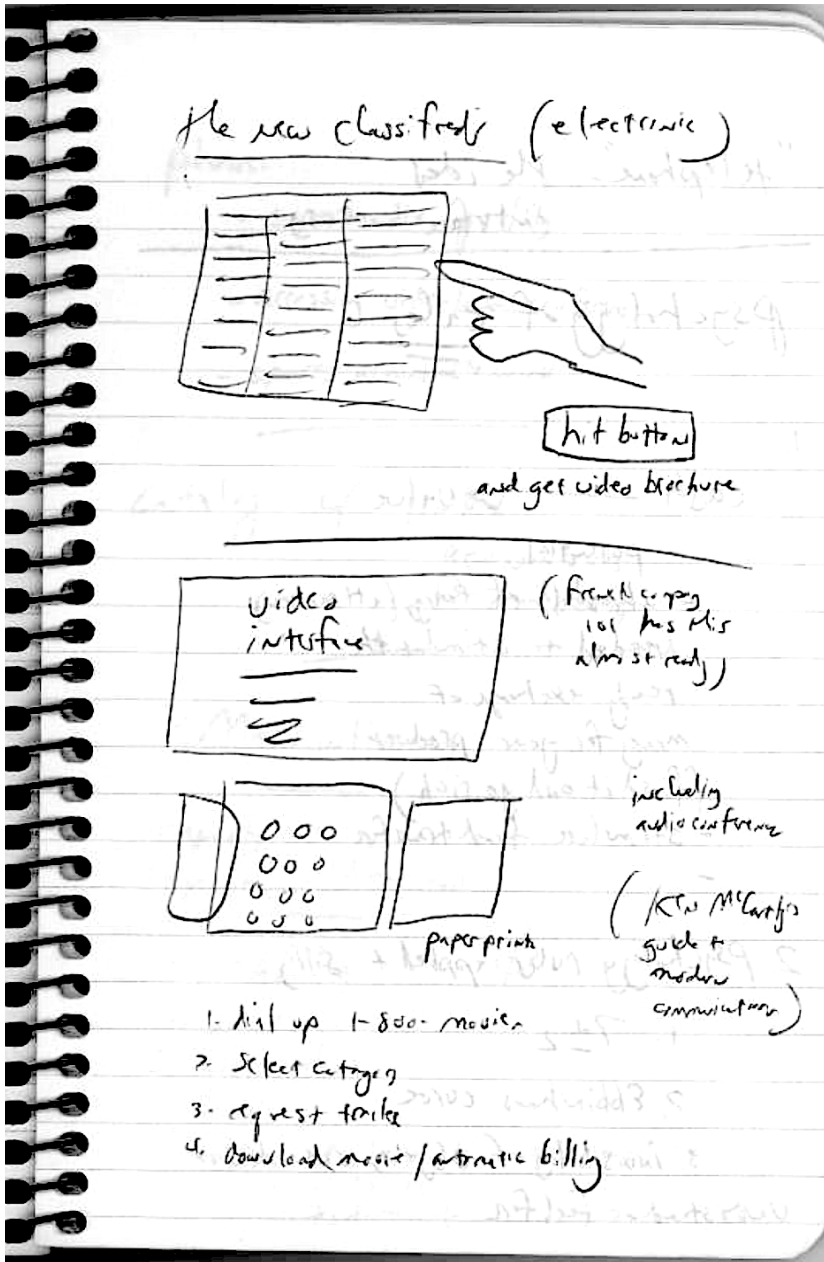 the new classifieds (electronic)
hit button
and get video brochure
video
interface
(French company
101 has this
almost ready)
including
audio conference
paper print
(Ken McCarthy's
guide to
modern
communications)
1. dial up 1-800-movies
2. select category
3. request trailer
4. download movie / automatic billing